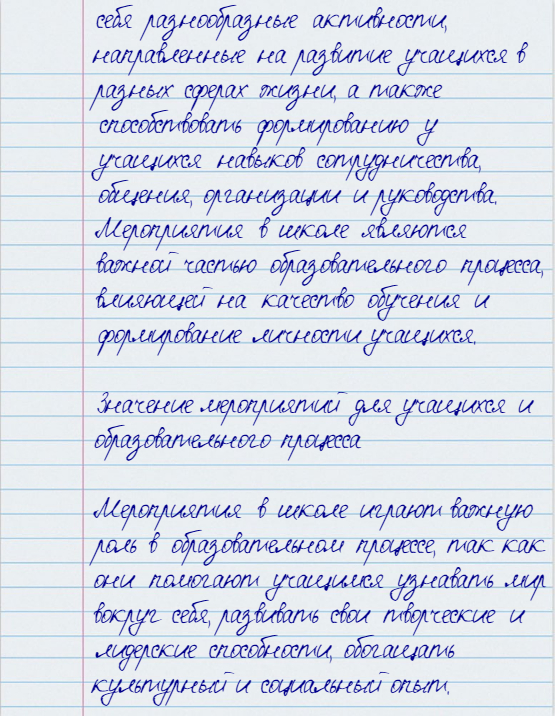 себя разнообразные активности,
направленные на развитие учащихся в
разных сферах жизни, а также
способствовать формированию у
учащихся навыков сотрудничества,
общения, организации и руководства.
Мероприятия в школе являются
важной частью образовательного процесса,
влияющей на качество обучения и
формирование личности учащихся.
Значение мероприятий для учащихся и
образовательного процесса
Мероприятия в школе играют важную
роль в образовательном процессе, так как
они помогают учащимся узнавать мир
вокруг себя, развивать свои творческие и
лидерские способности, обогащать
культурный и социальный опыт.